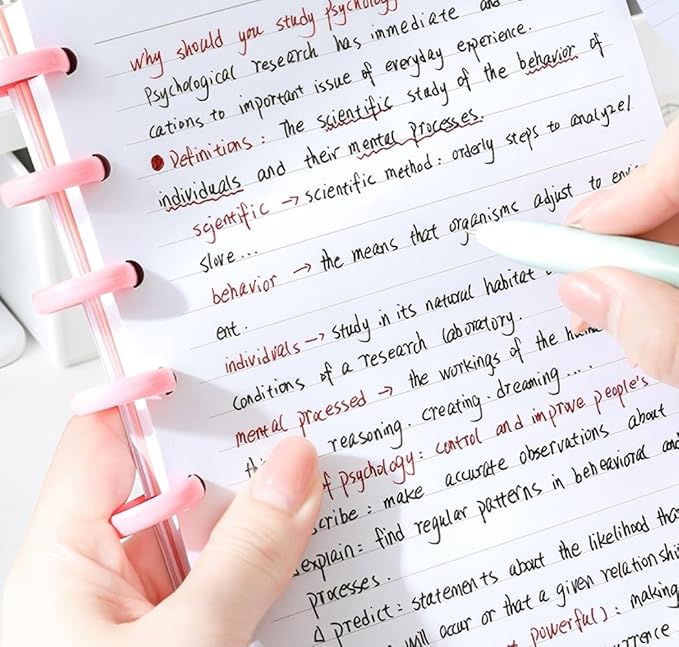 why should you study psychology
Psychological research has immediate and
cations to important issue of everyday experience.
Definitions: The scientific study of the behavior of
individuals and their mental processes.
scientific → scientific method: orderly steps to analyze/
slove...
behavior → the means that organisms adjust to envi
ent.
individuals → study in its natural habitat
conditions of a research laboratory.
mental processed → the workings of the
reasoning. creating. dreaming....
psychology: control and improve people's
scribe: make accurate observations about
explain: find regular patterns in beheavioral and
processes.
predict: statements about the likelihood tha
will occur or that a given relationshi
powerful): making
rrence